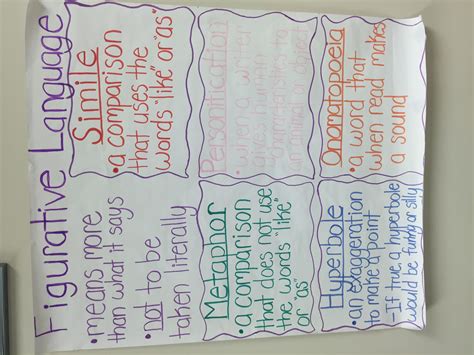 Figurative Language
• means more
than what it says
• not to be
taken literally
Simile
• a comparison
that uses the
words "like" or "as"
Metaphor
• a comparison
that does not use
the words "like"
or "as"
Personification
• when a writer
gives human
characteristics to
an animal or object
Hyperbole
• an exaggeration
to make a point
If true a hyperbole
would be funny or silly
Onomatopoeia
• a word that
when read makes
a sound